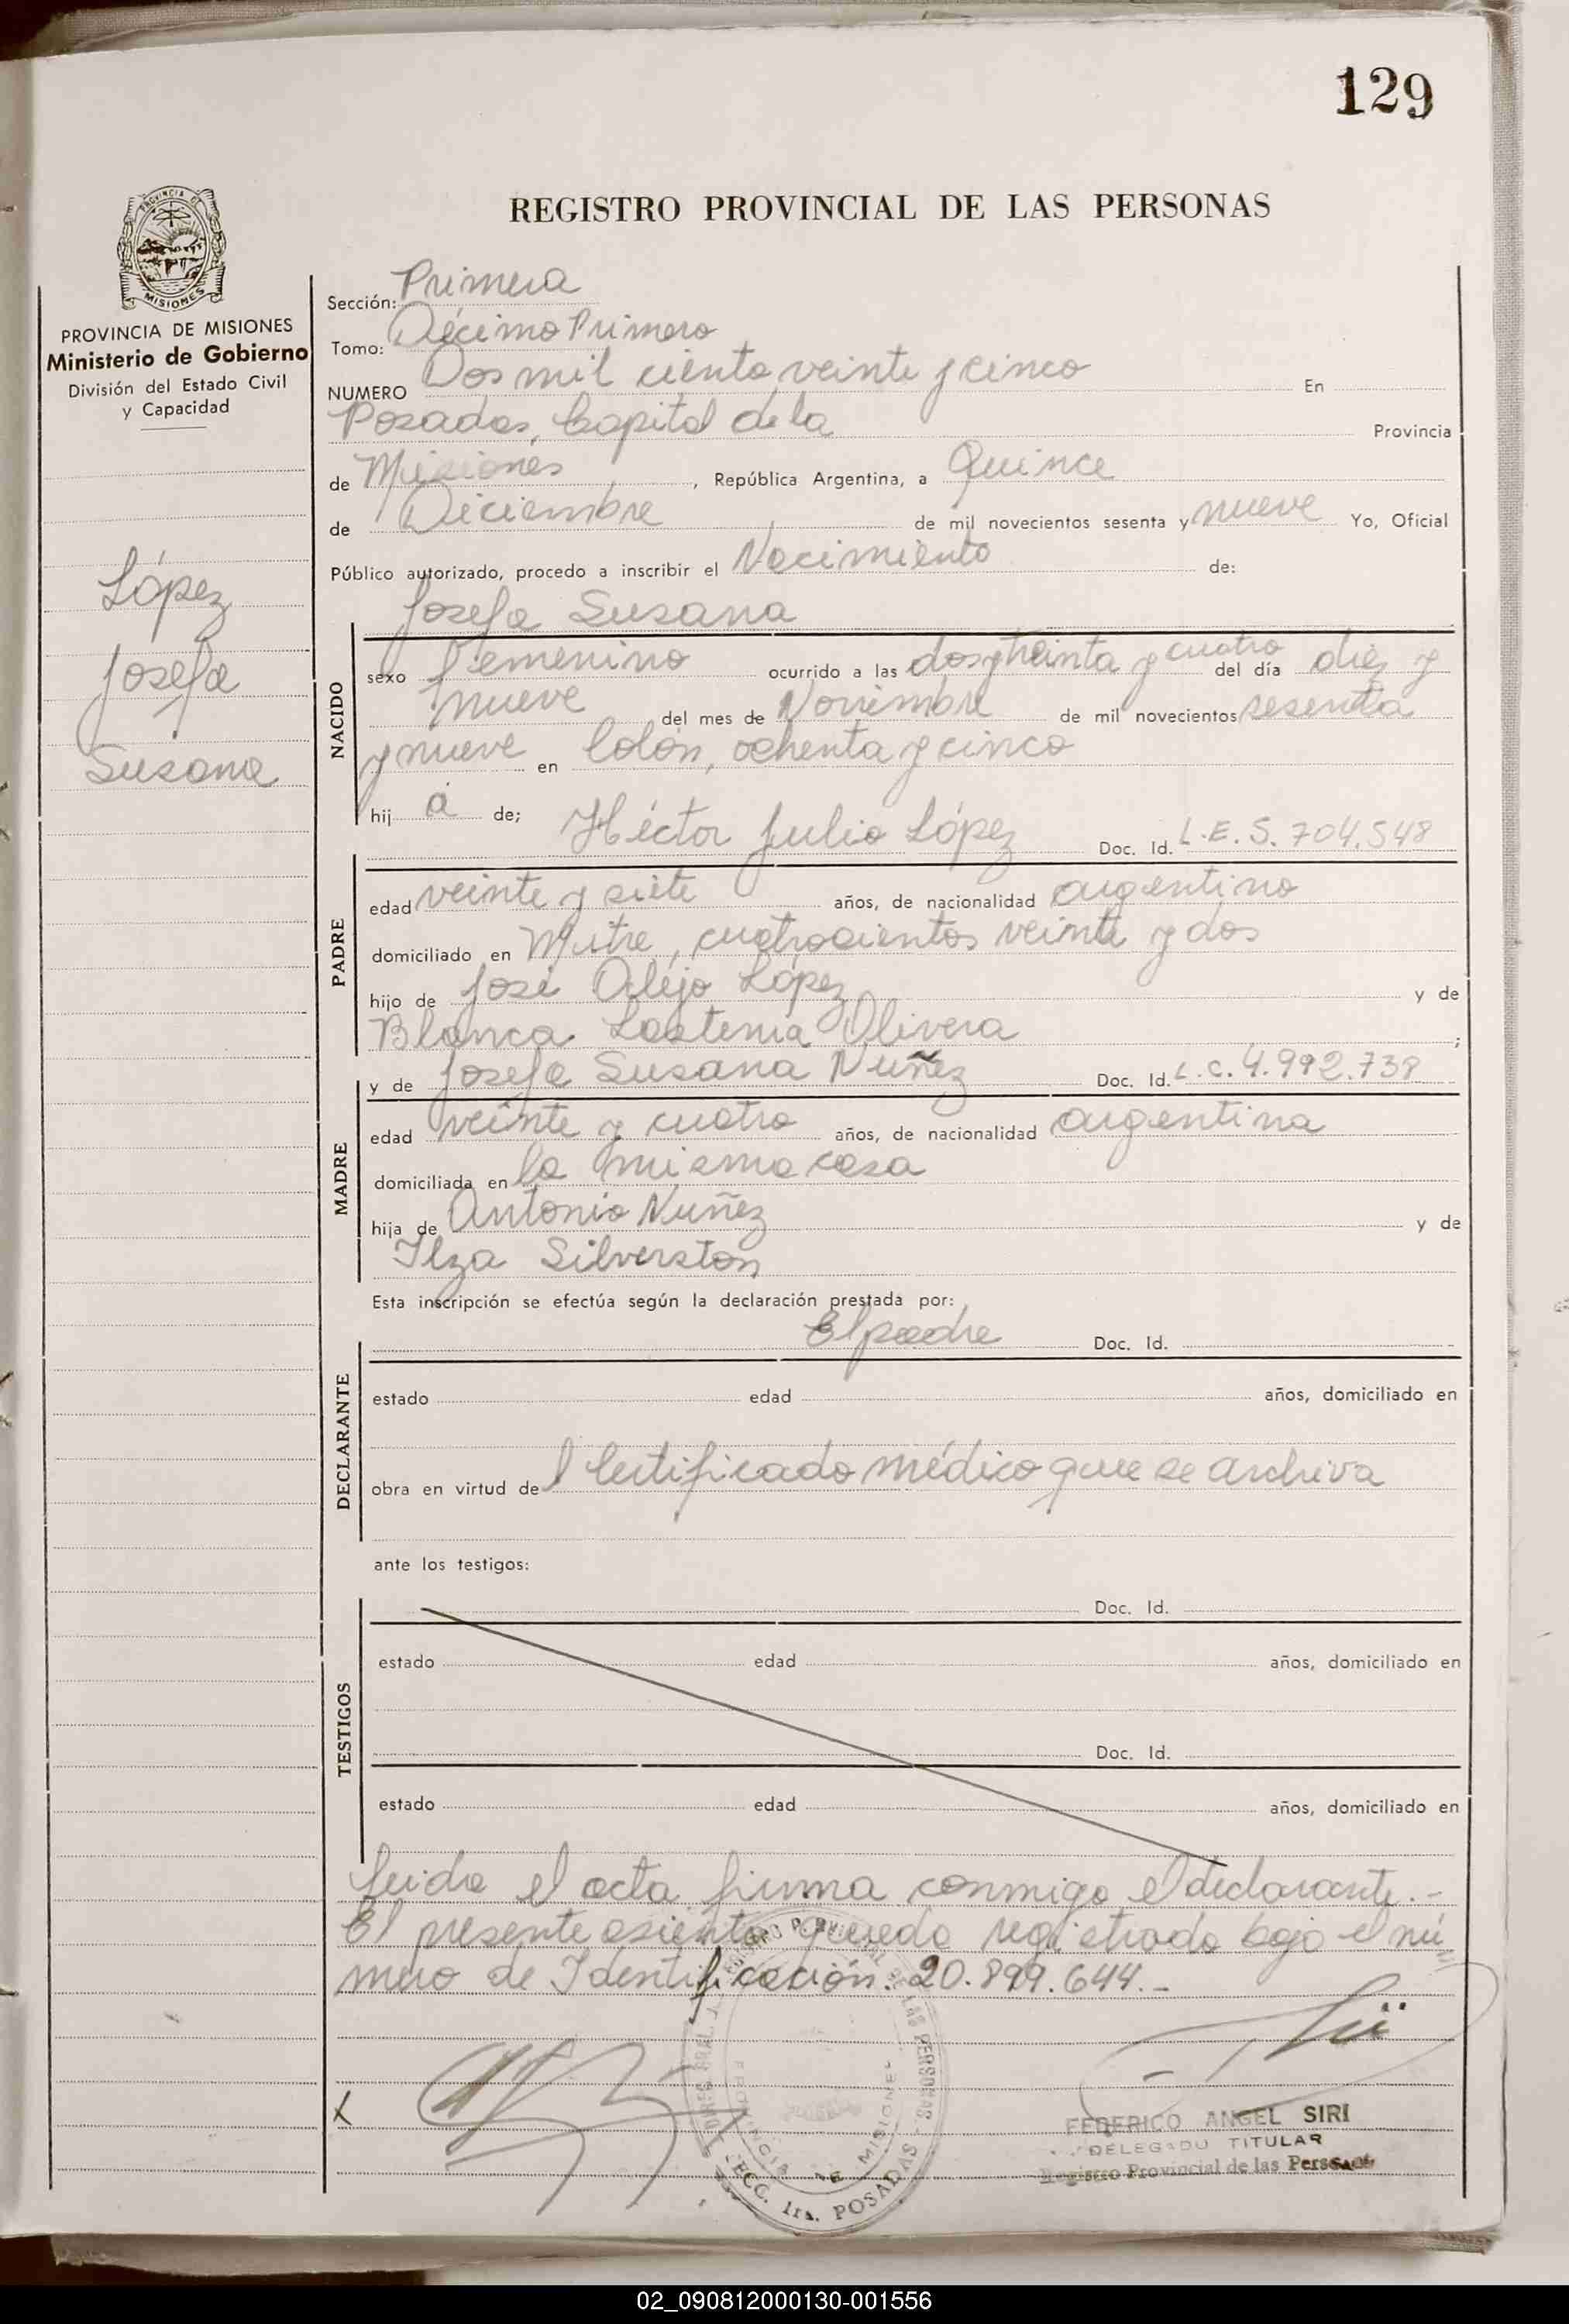 129
REGISTRO PROVINCIAL DE LAS PERSONAS
PROVINCIA DE MISIONES
MISIONES
PROVINCIA DE MISIONES
Ministerio de Gobierno
División del Estado Civil
y Capacidad
López
Josefa
Susana
Sección: Primera
Tomo: Décimo Primero
NUMERO Dos mil ciento veinte y cinco En
Posadas, Capital de la Provincia
de Misiones, República Argentina, a Quince
de Diciembre de mil novecientos sesenta y nueve Yo, Oficial
Público autorizado, procedo a inscribir el Nacimiento de:
Josefa Susana
NACIDO
sexo Femenino ocurrido a las dos y treinta y cuatro del día diez y
nueve del mes de Noviembre de mil novecientos sesenta
y nueve en Colón, ochenta y cinco
hij a de;
Héctor Julio López Doc. Id. L.E.5.704.548
PADRE
edad veinte y siete años, de nacionalidad argentino
domiciliado en Mitre, cuatrocientos veinte y dos
hijo de José Alejo López y de
Blanca Lastenia Olivera ;
y de Josefa Susana Nuñez Doc. Id. L.C.4.992.738
MADRE
edad veinte y cuatro años, de nacionalidad argentina
domiciliada en la misma casa
hija de Antonio Nuñez y de
Ilza Silverston
Esta inscripción se efectúa según la declaración prestada por:
El padre Doc. Id.
DECLARANTE
estado edad años, domiciliado en
obra en virtud de l Certificado médico que se archiva
ante los testigos:
Doc. Id.
TESTIGOS
estado edad años, domiciliado en
Doc. Id.
estado edad años, domiciliado en
Leida el acta firma conmigo el declarante.-
El presente asiento queda registrado bajo el nú=
mero de Identificación: 20.899.644.-
X
FEDERICO ANGEL SIRI
DELEGADO TITULAR
Registro Provincial de las Personas
PROVINCIA DE MISIONES
SECC. 1ra. POSADAS
02_090812000130-001556